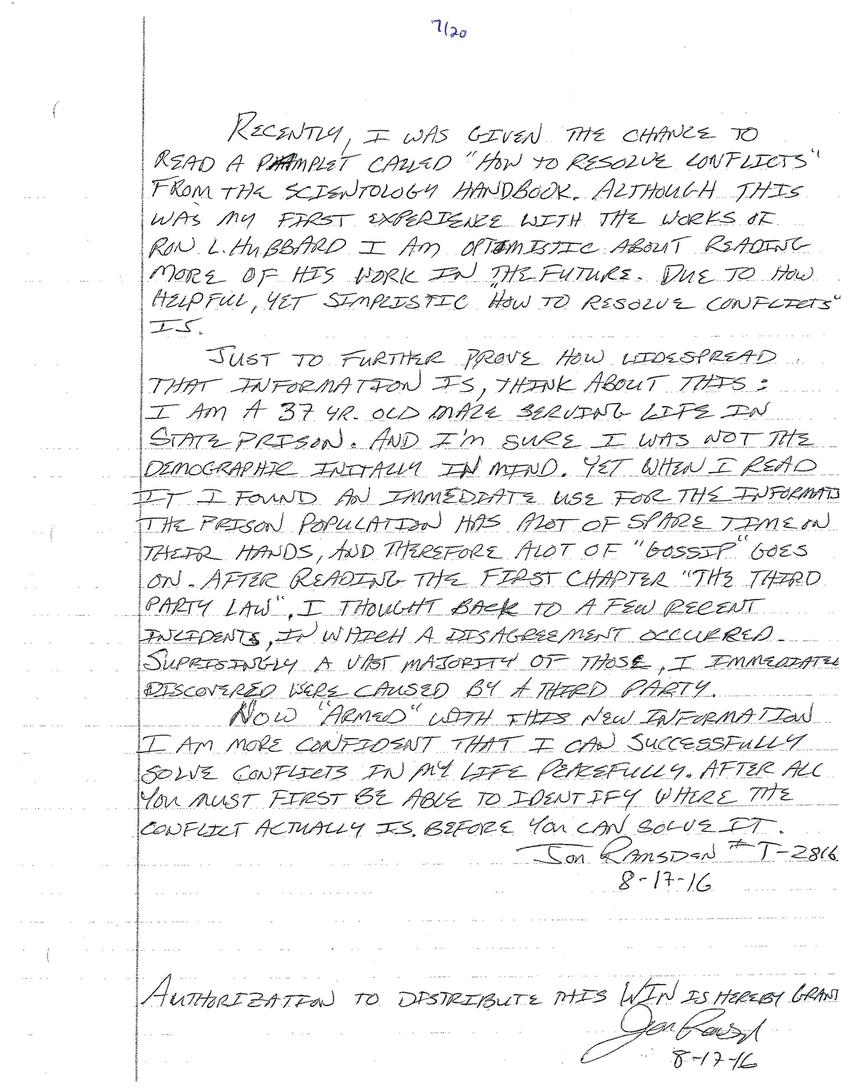 7/20
RECENTLY, I WAS GIVEN THE CHANCE TO
READ A PAMPLET CALLED "HOW TO RESOLVE CONFLICTS"
FROM THE SCIENTOLOGY HANDBOOK. ALTHOUGH THIS
WAS MY FIRST EXPERIENCE WITH THE WORKS OF
RON L. HUBBARD I AM OPTIMISTIC ABOUT READING
MORE OF HIS WORK IN THE FUTURE. DUE TO HOW
HELPFULL, YET SIMPLISTIC "HOW TO RESOLVE CONFLICTS"
IS.
JUST TO FURTHER PROVE HOW WIDESPREAD
THAT INFORMATION IS, THINK ABOUT THIS:
I AM A 37 YR. OLD MALE SERVING LIFE IN
STATE PRISON. AND I'M SURE I WAS NOT THE
DEMOGRAPHIC INITALLY IN MIND. YET WHEN I READ
IT I FOUND AN IMMEDIATE USE FOR THE INFORMATI
THE PRISON POPULATION HAS ALOT OF SPARE TIME ON
THEIR HANDS, AND THEREFORE ALOT OF "GOSSIP" GOES
ON. AFTER READING THE FIRST CHAPTER "THE THIRD
PARTY LAW", I THOUGHT BACK TO A FEW RECENT
INCIDENTS, IN WHICH A DISAGREEMENT OCCURRED.
SUPRISINGLY A VAST MAJORITY OF THOSE, I IMMEDIATEL
DISCOVERED WERE CAUSED BY A THIRD PARTY.
NOW "ARMED" WITH THIS NEW INFORMATION
I AM MORE CONFIDENT THAT I CAN SUCCESSFULLY
SOLVE CONFLICTS IN MY LIFE PEACEFULLY. AFTER ALL
YOU MUST FIRST BE ABLE TO IDENTIFY WHERE THE
CONFLICT ACTUALLY IS. BEFORE YOU CAN SOLVE IT.
JON RAMSDEN #T-2816
8-17-16
AUTHORIZATION TO DISTRIBUTE THIS WIN IS HEREBY GRANT
8-17-16